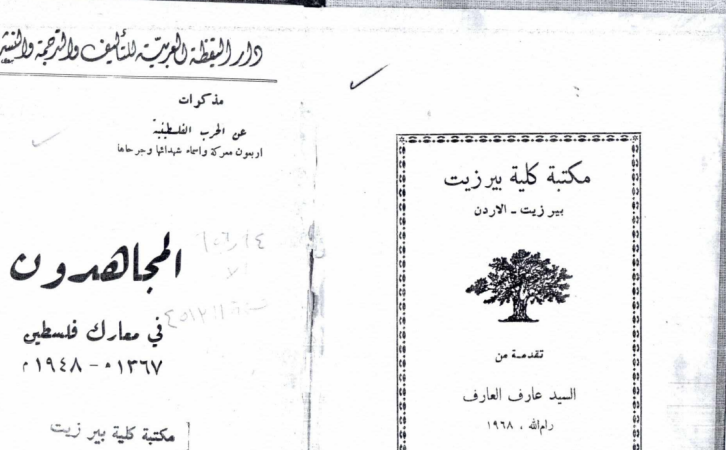 مكتبة كلية بيرزيت
بيرزيت - الاردن
تقدمة من
السيد عارف العارف
رام الله ، ١٩٦٨
دار اليقظة العربية للتأليف والترجمة والنشر
مذكرات
عن الحرب الفلسطينية
اربعون معركة واسماء شهدائها وجرحاها
المجاهدون
في معارك فلسطين
١٣٦٧ ه - ١٩٤٨ م
مكتبة كلية بير زيت